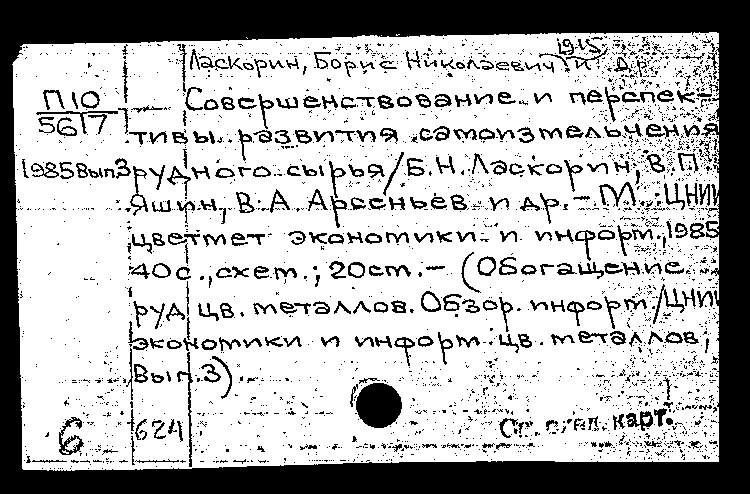 1915
Ласкорин, Борис Николаевич и др
П10 Совершенствование и перспек-
5617 тивы развития самоизмельчения
1985 Вып.3 рудного сырья/Б.Н.Ласкорин, В.П.
Яшин, В.А.Арсеньев и др.- М.:ЦНИИ
цветмет экономики и информ.,1985
40с.,схем.; 20см.- (Обогащение
руд цв. металлов. Обзор. информ/ЦНИИ
экономики и информ. цв. металлов;
Вып.3).
6 624
карт.